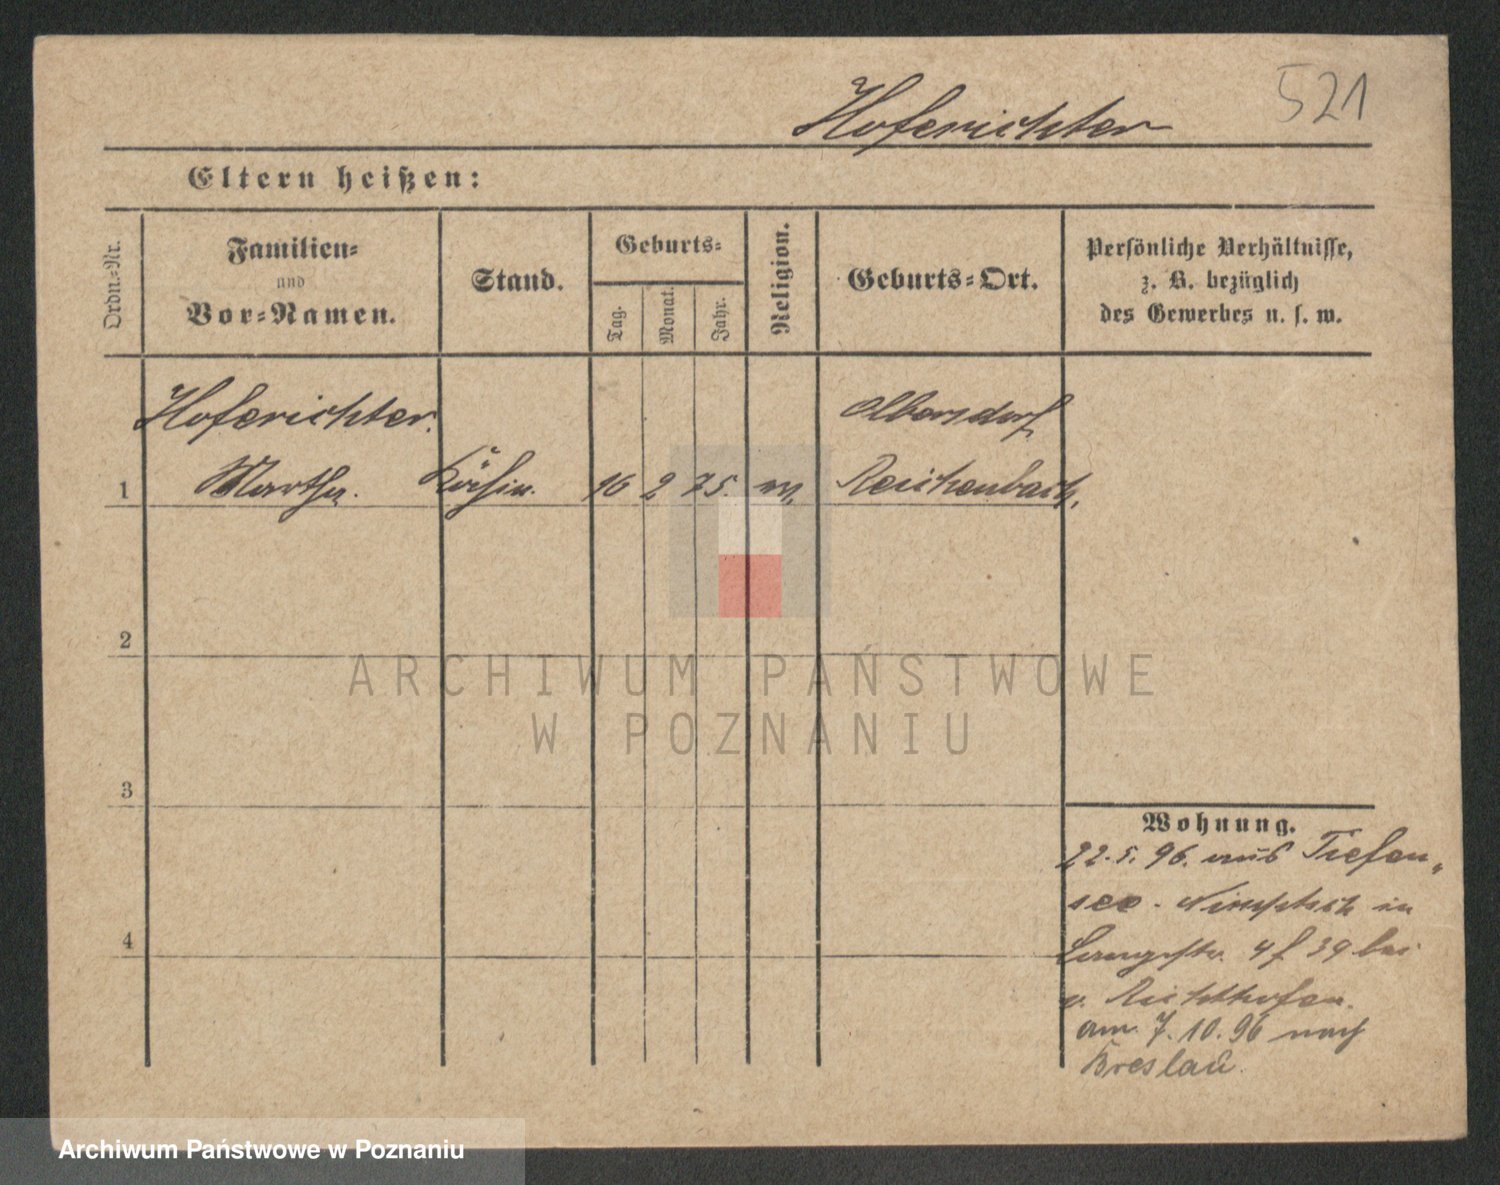 521
Hoferichter
Eltern heißen:
Ordn.=Nr.
Familien=
und
Vor=Namen.
Stand.
Geburts=
Tag.
Monat.
Jahr.
Religion.
Geburts=Ort.
Persönliche Verhältnisse,
z. B. bezüglich
des Gewerbes u. s. w.
Hoferichter. Olbersdorf
1 Martha. Köchin. 16 2 75. Reichenbach.
2
ARCHIWUM PAŃSTWOWE
W POZNANIU
3
4
Wohnung.
22.5.96. aus Tiefen„
see - Nimptsch in
Langestr. 4 f 39 bei
v. Richthofen.
am 7.10.96 nach
Breslau.
Archiwum Państwowe w Poznaniu